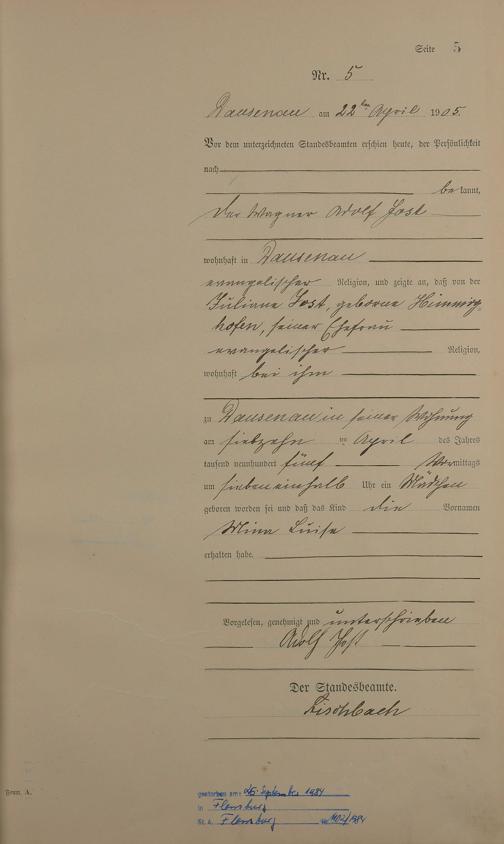 Seite 5
Nr. 5
Dausenau am 22ten April 1905.
Vor dem unterzeichneten Standesbeamten erschien heute, der Persönlichkeit
nach
bekannt,
der Wagner Adolf Jost
wohnhaft in Dausenau
evangelischer Religion, und zeigte an, daß von der
Juliane Jost, geborne Himmrig-
hofen, seiner Ehefrau
evangelischer Religion,
wohnhaft bei ihm
zu Dausenau in seiner Wohnung
am siebzehn ten April des Jahres
tausend neunhundert fünf Vormittags
um sieben einhalb Uhr ein Mädchen
geboren worden sei und daß das Kind die Vornamen
Mina Luise
erhalten habe.
Vorgelesen, genehmigt und unterschrieben
Adolf Jost
Der Standesbeamte.
Fischbach
Form. A.
gestorben am: September 1984
in Flensburg
St. A. Flensburg /1984